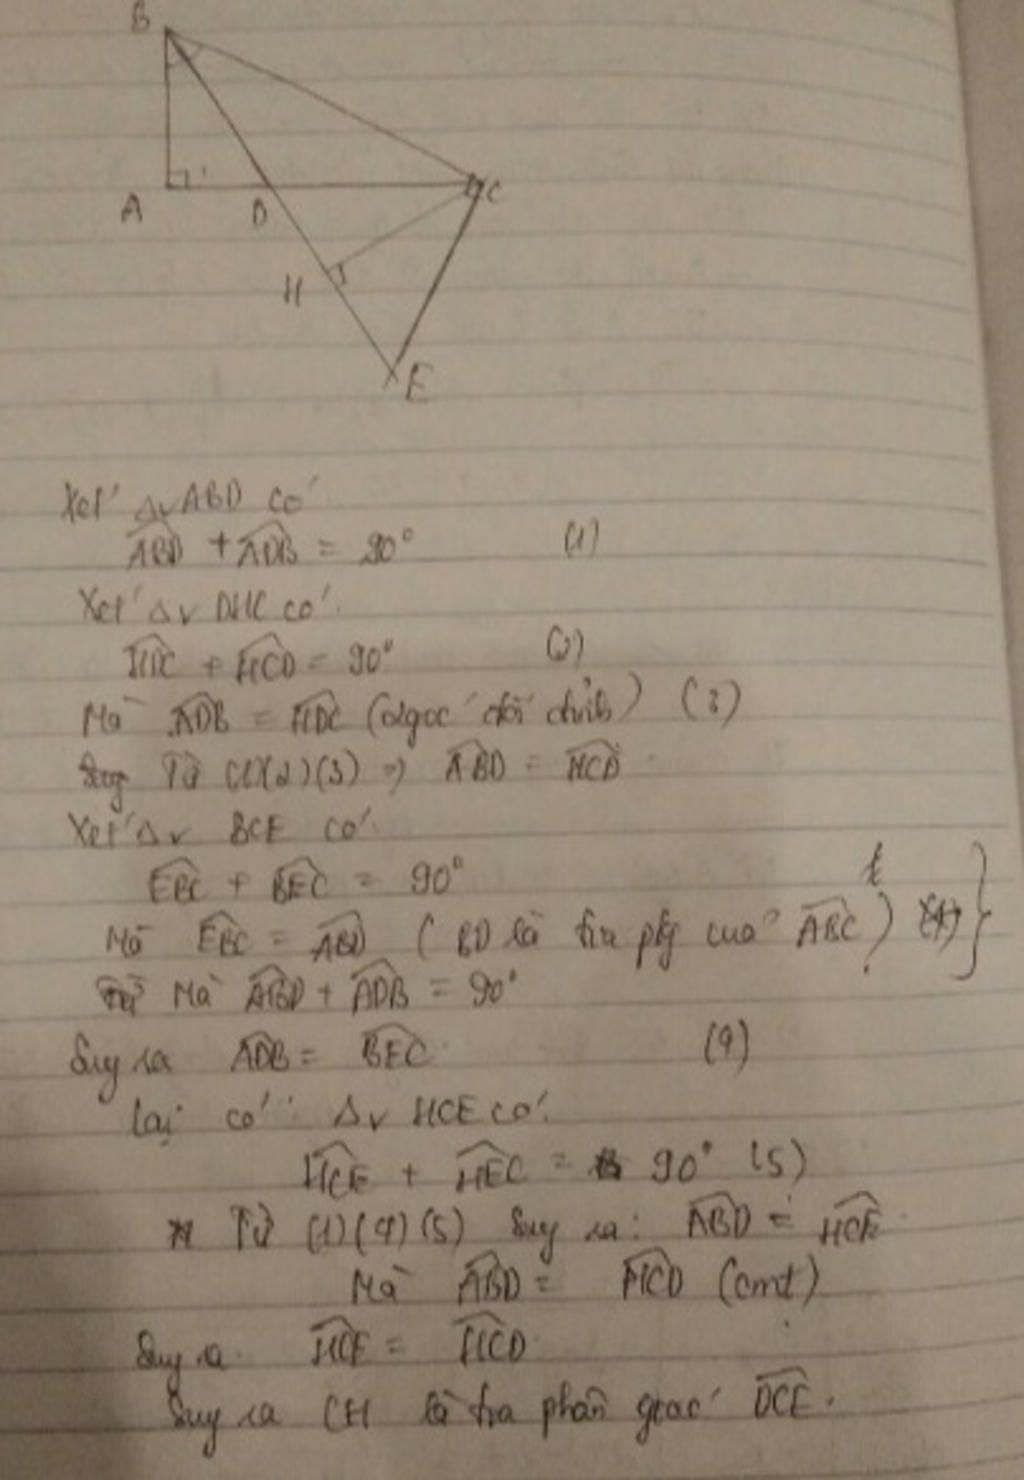 B
A
D
C
H
E
Xét Δv ABD có
ABD + ADB = 90° (1)
Xét Δv DHC có:
HDC + HCD = 90° (2)
Mà ADB = HDC (góc đối đỉnh) (3)
Từ (1)(2)(3) => ABD = HCD
Xét Δv BCE có:
EBC + BEC = 90°
Mà EBC = ABD (BD là tia pg của ABC)
Mà ABD + ADB = 90°
Suy ra ADB = BEC (4)
Lại có: Δv HCE có:
HCE + HEC = 90° (5)
Từ (1)(4)(5) Suy ra: ABD = HCE
Mà ABD = HCD (cmt)
Suy ra HCE = HCD
Suy ra CH là tia phân giác DCE.